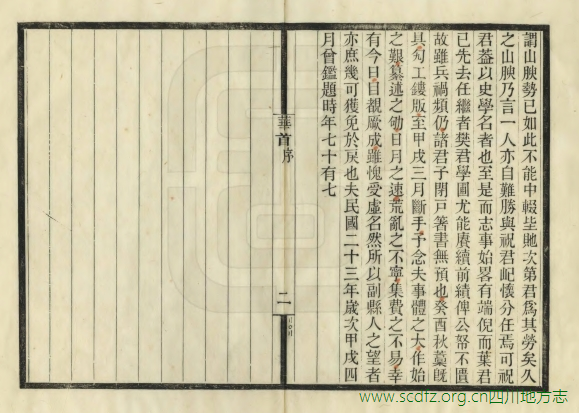 謂山腴勢已如此不能中輟坒貤次第君爲其勞矣久
之山腴乃言一人亦自難勝與祝君屺懷分任焉可祝
君葢以史學名者也至是而志事始畧有端倪而葉君
已先去任繼者獎君學圃尤能賡續前績俾公帑不匱
故雖兵禍頻仍諸君子閉戸箸書無預也癸酉秋稾旣
具勼工鏤版至甲戌三月斷手予念夫事體之大作始
之艱纂述之勩日月之速荒亂之不寧集費之不易幸
有今日目覩厥成雖愧受虛名然所以副縣人之望者
亦庶幾可獲免於戾也夫民國二十三年歲次甲戌四
月曾鑑題時年七十有七
華首 序
二
www.scdfz.org.cn四川地方志